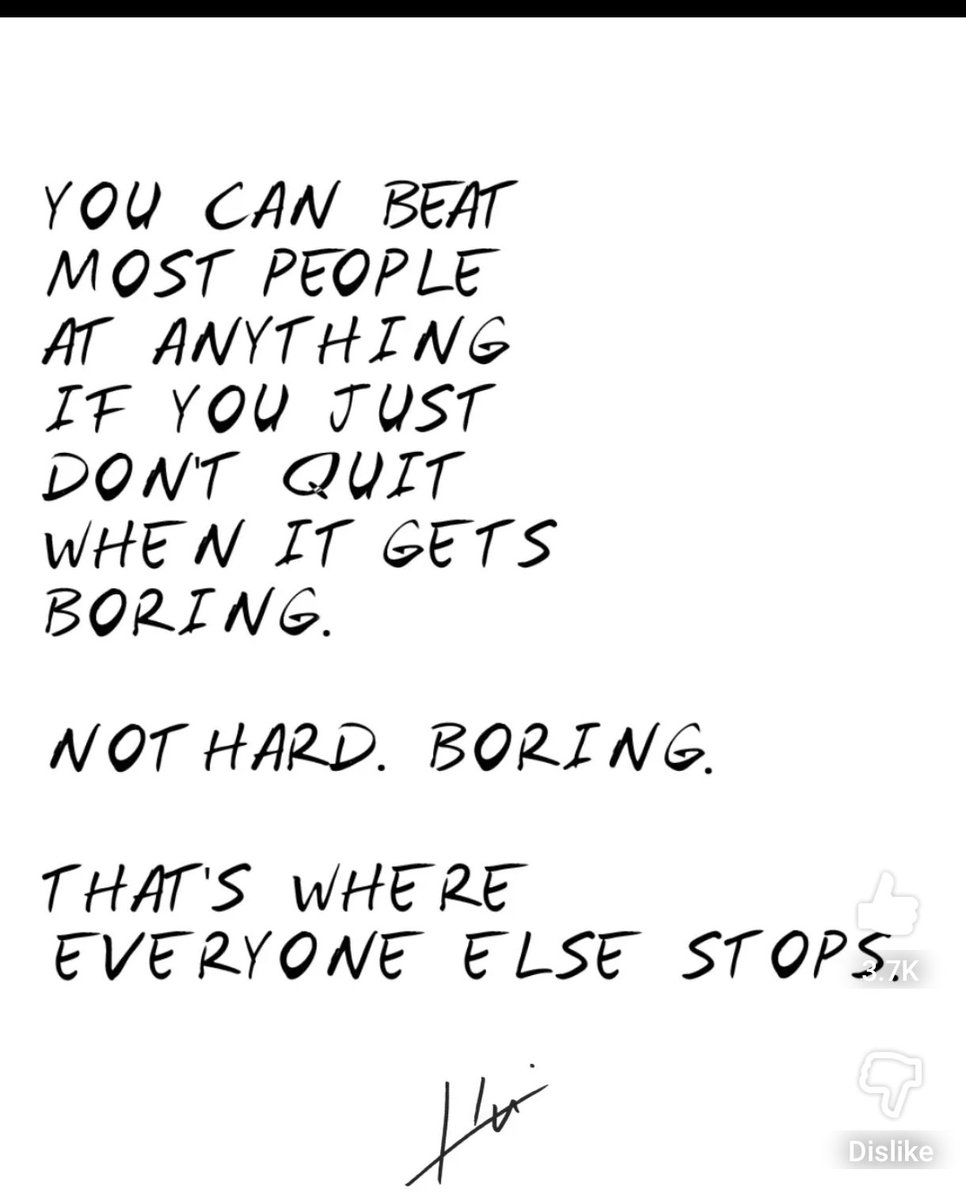 YOU CAN BEAT
MOST PEOPLE
AT ANYTHING
IF YOU JUST
DON'T QUIT
WHEN IT GETS
BORING.
NOT HARD. BORING.
THAT'S WHERE
EVERYONE ELSE STOPS.
3.7K
Dislike